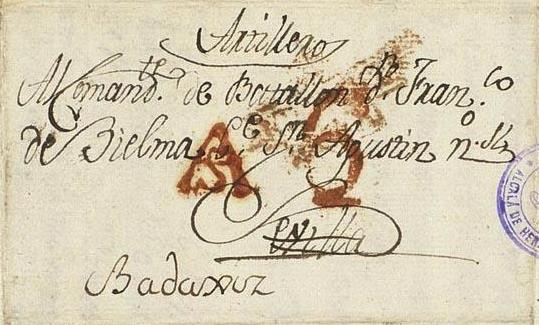 Artillero
Al Comand.te de Batallon Dn. Fran.co
de Bielma, C.e Sn. Agustin n.o
Sevilla
Badaxoz
A
2
ALCALA DE HEN